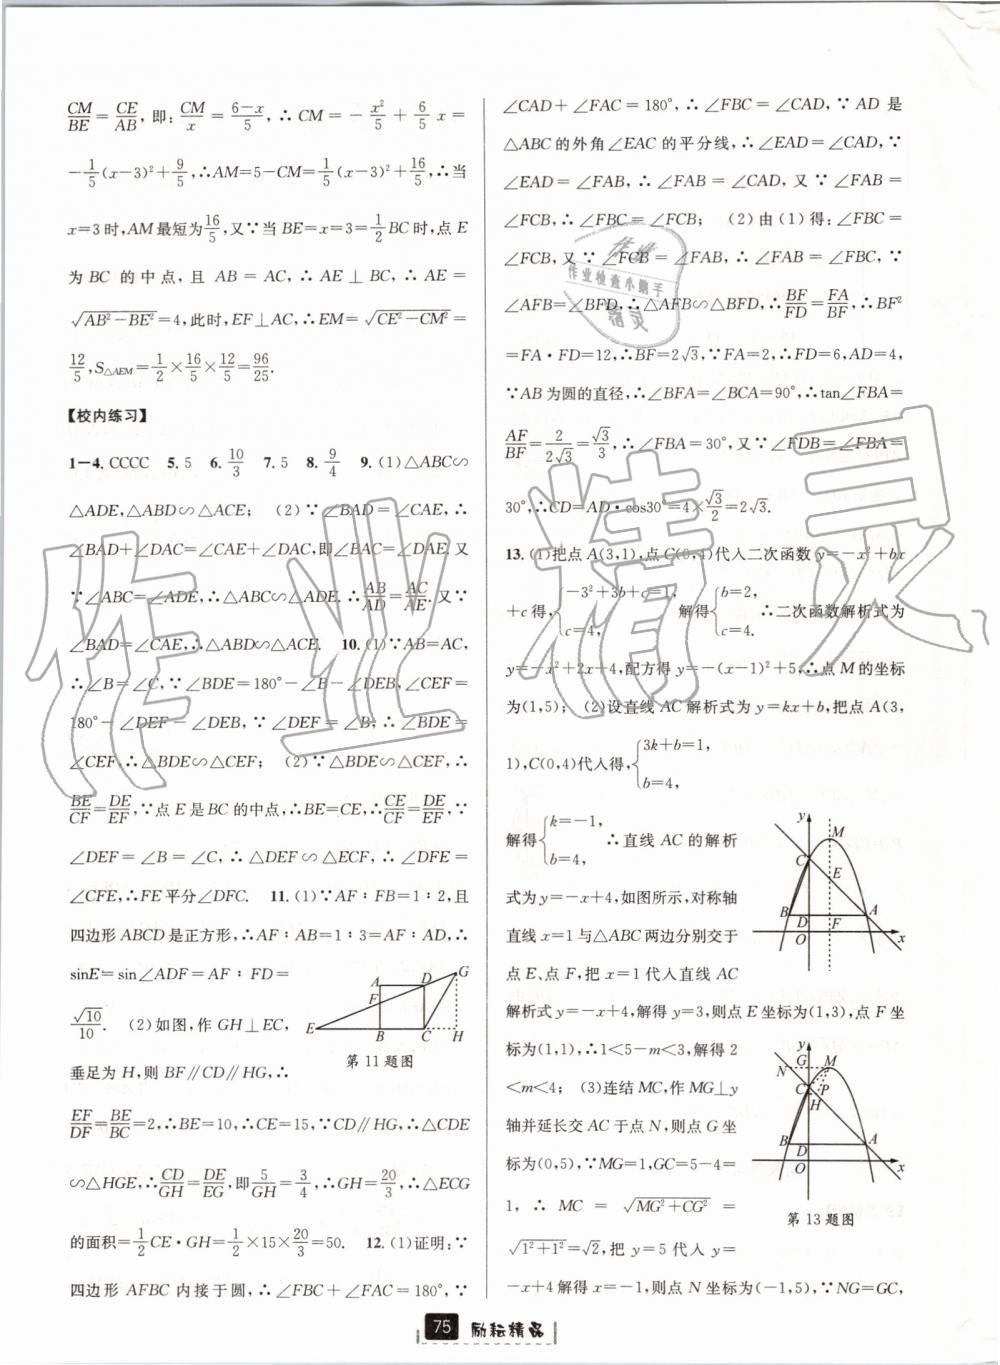 CM/BE=CE/AB, 即: CM/x=(6-x)/5, ∴CM=-x²/5+6/5 x=
-1/5(x-3)²+9/5, ∴AM=5-CM=1/5(x-3)²+16/5, ∴当
x=3时, AM最短为16/5, 又∵当BE=x=3=1/2BC时, 点E
为BC的中点, 且AB=AC, ∴AE⊥BC, ∴AE=
√(AB²-BE²)=4, 此时, EF⊥AC, ∴EM=√(CE²-CM²)=
12/5, S△AEM=1/2×16/5×12/5=96/25.
【校内练习】
1-4. CCCC 5. 5 6. 10/3 7. 5 8. 9/4 9. (1)△ABC∽
△ADE, △ABD∽△ACE; (2)∵∠BAD=∠CAE, ∴
∠BAD+∠DAC=∠CAE+∠DAC, 即∠BAC=∠DAE. 又
∵∠ABC=∠ADE, ∴△ABC∽△ADE. ∴AB/AD=AC/AE. 又∵
∠BAD=∠CAE, ∴△ABD∽△ACE. 10. (1)∵AB=AC,
∴∠B=∠C, ∵∠BDE=180°-∠B-∠DEB, ∠CEF=
180°-∠DEF-∠DEB, ∵∠DEF=∠B, ∴∠BDE=
∠CEF, ∴△BDE∽△CEF; (2)∵△BDE∽△CEF, ∴
BE/CF=DE/EF, ∵点E是BC的中点, ∴BE=CE, ∴CE/CF=DE/EF, ∵
∠DEF=∠B=∠C, ∴△DEF∽△ECF, ∴∠DFE=
∠CFE, ∴FE平分∠DFC. 11. (1)∵AF∶FB=1∶2, 且
四边形ABCD是正方形, ∴AF∶AB=1∶3=AF∶AD, ∴
sinE=sin∠ADF=AF∶FD=
√10/10. (2)如图, 作GH⊥EC,
垂足为H, 则BF∥CD∥HG, ∴
A D G F E B C H
第11题图
EF/DF=BE/BC=2, ∴BE=10, ∴CE=15, ∵CD∥HG, ∴△CDE
∽△HGE, ∴CD/GH=DE/EG, 即5/GH=3/4, ∴GH=20/3, ∴△ECG
的面积=1/2CE·GH=1/2×15×20/3=50. 12. (1)证明: ∵
四边形AFBC内接于圆, ∴∠FBC+∠FAC=180°, ∵
∠CAD+∠FAC=180°, ∴∠FBC=∠CAD, ∵AD是
△ABC的外角∠EAC的平分线, ∴∠EAD=∠CAD, ∵
∠EAD=∠FAB, ∴∠FAB=∠CAD, 又∵∠FAB=
∠FCB, ∴∠FBC=∠FCB; (2)由(1)得: ∠FBC=
∠FCB, 又∵∠FCB=∠FAB, ∴∠FAB=∠FBC, ∵
∠AFB=∠BFD, ∴△AFB∽△BFD, ∴BF/FD=FA/BF, ∴BF²
=FA·FD=12, ∴BF=2√3, ∵FA=2, ∴FD=6, AD=4,
∵AB为圆的直径, ∴∠BFA=∠BCA=90°, ∴tan∠FBA=
AF/BF=2/(2√3)=√3/3, ∴∠FBA=30°, 又∵∠FDB=∠FBA=
30°, ∴CD=AD·cos30°=4×√3/2=2√3.
13. (1)把点A(3,1), 点C(0,4)代入二次函数y=-x²+bx
+c得, {-3²+3b+c=1, c=4, 解得{b=2, c=4. ∴二次函数解析式为
y=-x²+2x+4, 配方得y=-(x-1)²+5, ∴点M的坐标
为(1,5); (2)设直线AC解析式为y=kx+b, 把点A(3,
1), C(0,4)代入得, {3k+b=1, b=4,
解得{k=-1, b=4, ∴直线AC的解析
式为y=-x+4, 如图所示, 对称轴
直线x=1与△ABC两边分别交于
点E、点F, 把x=1代入直线AC
解析式y=-x+4, 解得y=3, 则点E坐标为(1,3), 点F坐
标为(1,1), ∴1<5-m<3, 解得2
<m<4; (3)连结MC, 作MG⊥y
轴并延长交AC于点N, 则点G坐
标为(0,5), ∵MG=1, GC=5-4=
1, ∴MC=√(MG²+CG²)=
√(1²+1²)=√2, 把y=5代入y=
-x+4解得x=-1, 则点N坐标为(-1,5), ∵NG=GC,
y M C E B D F A O x
y G M N C P H B D A O x
第13题图
作业
作业检查小助手
精灵
作业精灵
75 励耘精品